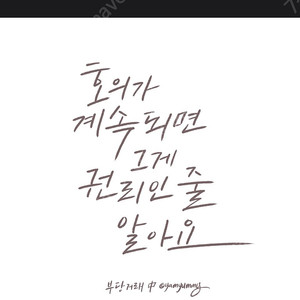 호의가
계속되면
그게
권리인 줄
알아요
부당거래 中 @yumyummy